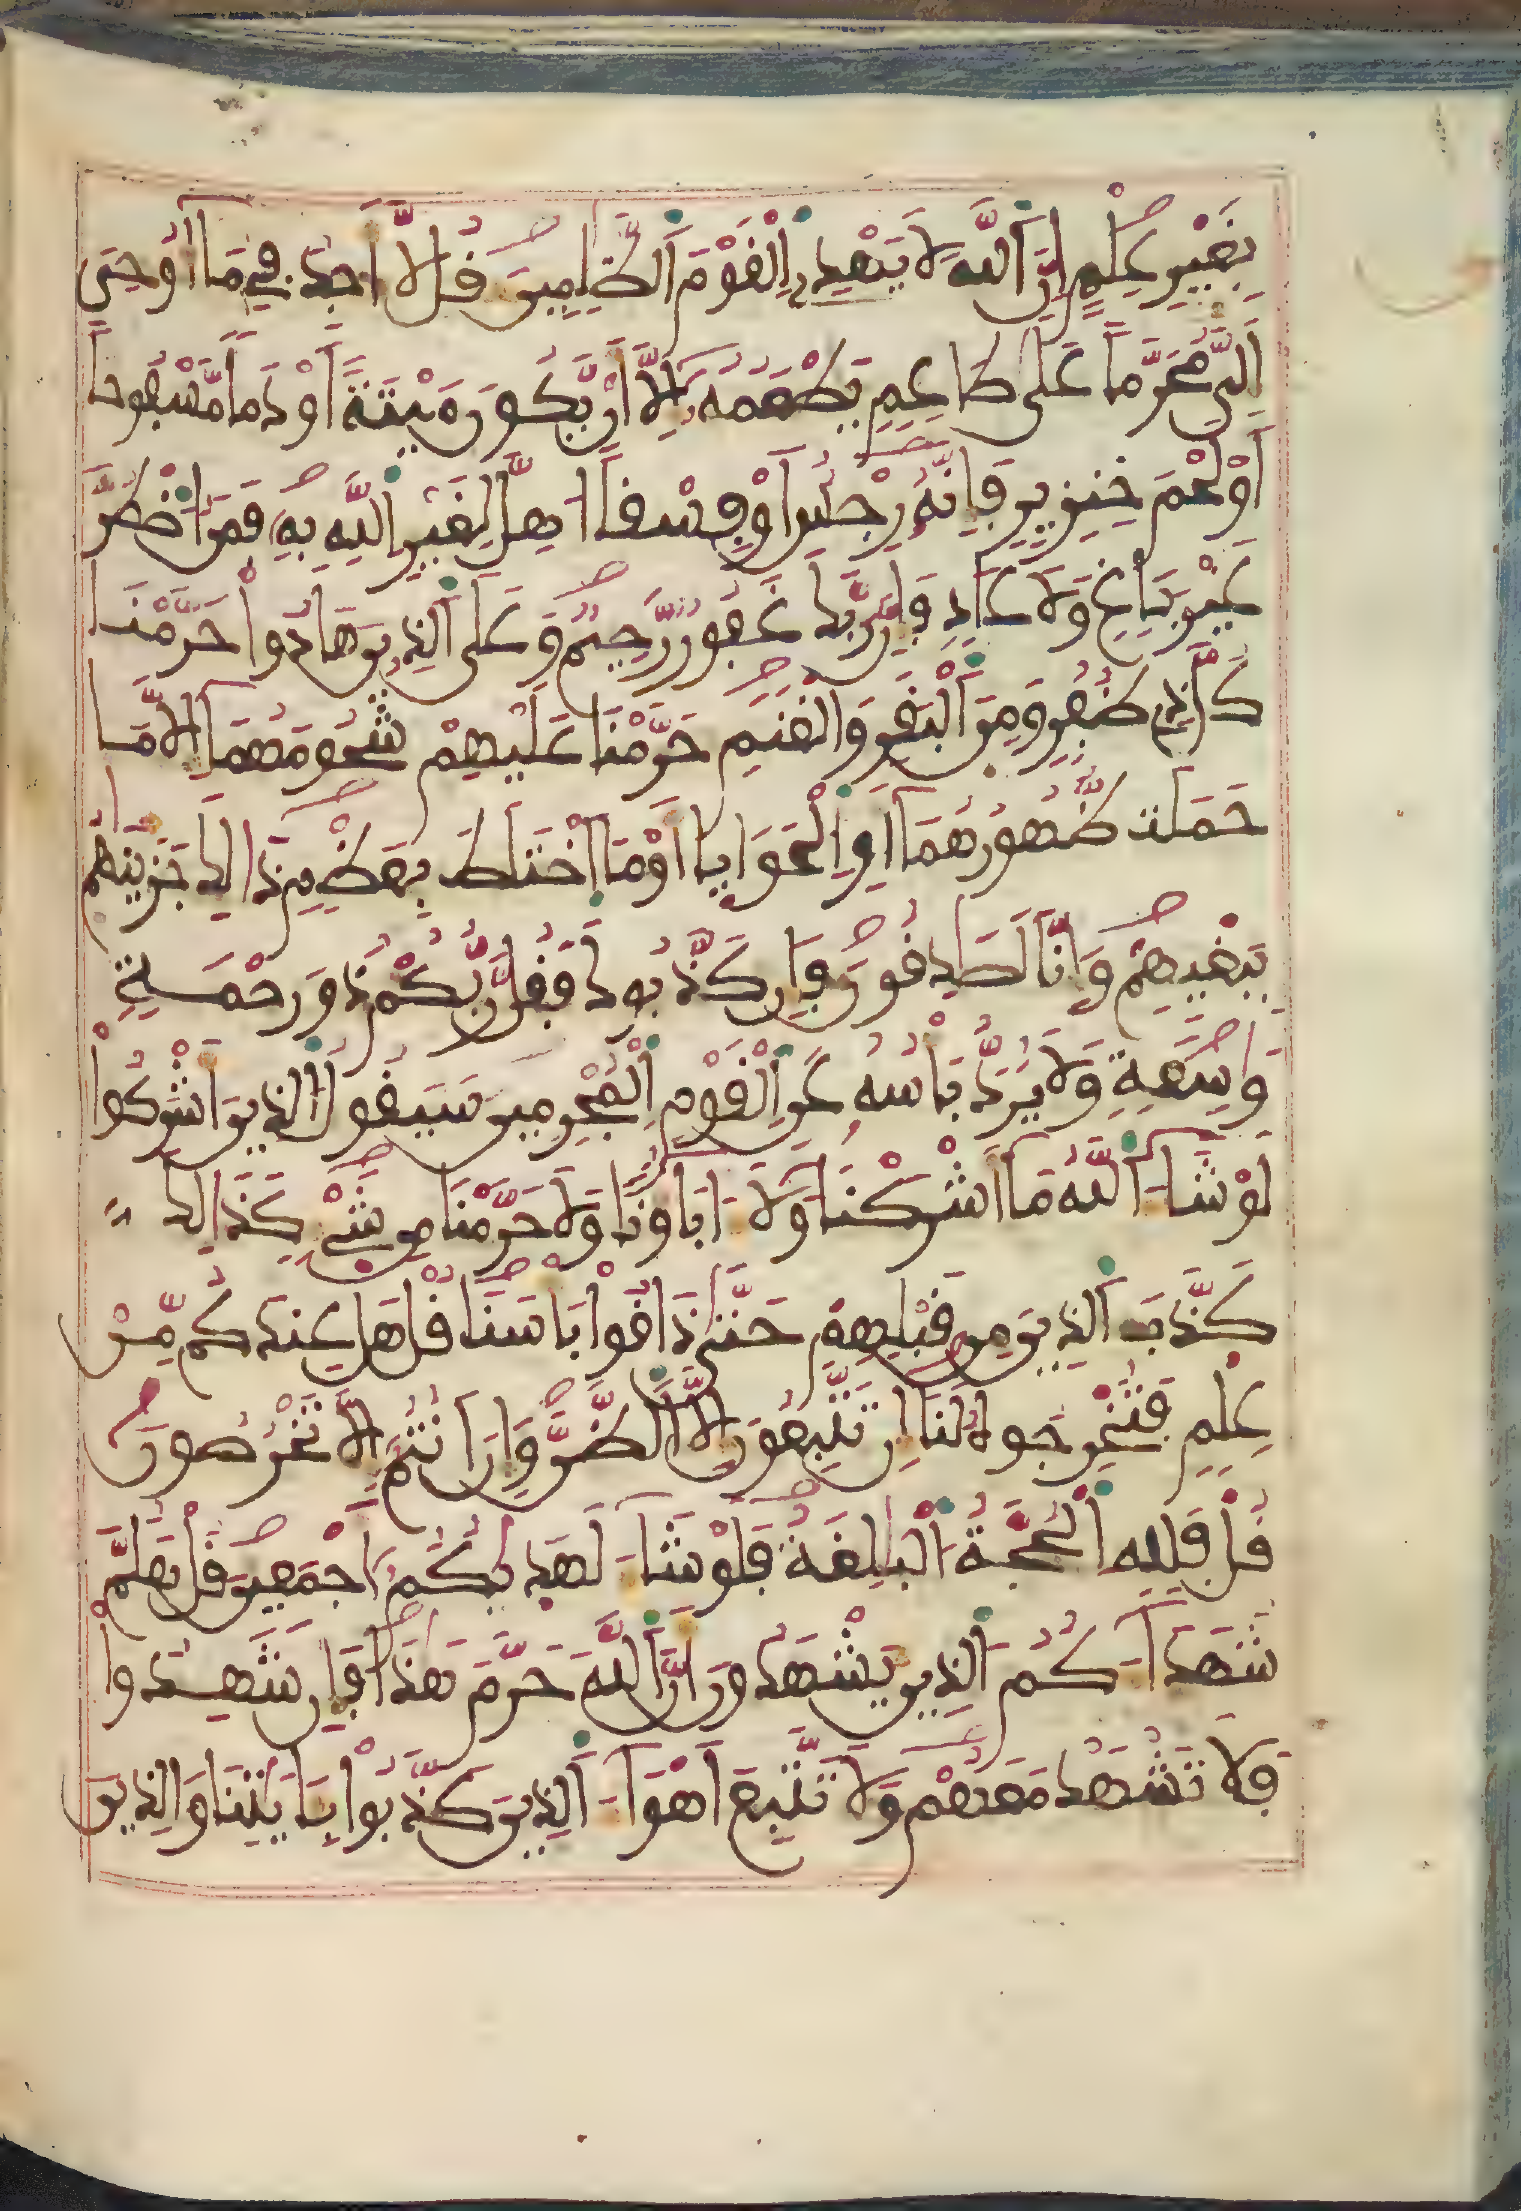 بِغَيْرِ عِلْمٍ إِنَّ اَللَّهَ لَا يَهْدِے اِلْقَوْمَ اَلظَّٰلِمِينَ قُل لَّا أَجِدُ فِي مَا أُوحِيَ
إِلَيَّ مُحَرَّماً عَلَىٰ طَاعِمٍ يَطْعَمُهُ إِلَّا أَنْ يَّكُونَ مَيْتَةً أَوْ دَماً مَّسْفُوحاً
أَوْ لَحْمَ خِنزِيرٍ فَإِنَّهُ رِجْسٌ أَوْ فِسْقاً اهِلَّ لِغَيْرِ اِللَّهِ بِهِ فَمَنُ اضْطُرَّ
غَيْرَ بَاغٍ وَلَا عَادٍ فَإِنَّ رَبَّكَ غَفُورٌ رَّحِيمٌ وَعَلَى اَلذِينَ هَادُواْ حَرَّمْنَا
كُلَّ ذِي ظُفُرٍ وَمِنَ اَلْبَقَرِ وَالْغَنَمِ حَرَّمْنَا عَلَيْهِمْ شُحُومَهُمَا إِلَّا مَا
حَمَلَت ظُّهُورُهُمَا أَوِ اِلْحَوَايَا أَوْ مَا اَخْتَلَطَ بِعَظْمٍ ذَٰلِكَ جَزَيْنَٰهُم
بِبَغْيِهِمْ وَإِنَّا لَصَٰدِقُونَ فَإِن كَذَّبُوكَ فَقُل رَّبُّكُمْ ذُو رَحْمَةٍ
وَٰسِعَةٍ وَلَا يُرَدُّ بَأْسُهُ عَنِ اِلْقَوْمِ اِلْمُجْرِمِينَ سَيَقُولُ اُلذِينَ أَشْرَكُواْ
لَوْ شَاءَ اَللَّهُ مَا أَشْرَكْنَا وَلَا ءَابَاؤُنَا وَلَا حَرَّمْنَا مِن شَيْءٍ كَذَٰلِكَ
كَذَّبَ اَلذِينَ مِن قَبْلِهِمْ حَتَّىٰ ذَاقُواْ بَأْسَنَا قُلْ هَلْ عِندَكُم مِّنْ
عِلْمٍ فَتُخْرِجُوهُ لَنَا إِن تَتَّبِعُونَ إِلَّا اَلظَّنَّ وَإِنْ أَنتُمْ إِلَّا تَخْرُصُونَ
قُلْ فَلِلهِ اِلْحُجَّةُ اُلْبَٰلِغَةُ فَلَوْ شَاءَ لَهَدَىٰكُمْ أَجْمَعِينَ قُلْ هَلُمَّ
شُهَدَاءَكُمُ اُلذِينَ يَشْهَدُونَ أَنَّ اَللَّهَ حَرَّمَ هَٰذَا فَإِن شَهِدُواْ
فَلَا تَشْهَدْ مَعَهُمْ وَلَا تَتَّبِعَ اَهْوَاءَ اَلذِينَ كَذَّبُواْ بِـَٔايَٰتِنَا وَالذِينَ